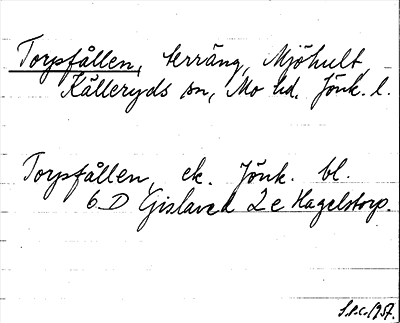 Torpfållen, terräng, Mjöhult,
Kålleryds sn, Mo hd. Jönk. l.
Torpfållen, ek. Jönk. bl.
6 D Gislaved 2 e Hagelstorp.
S.p.c. 1957.